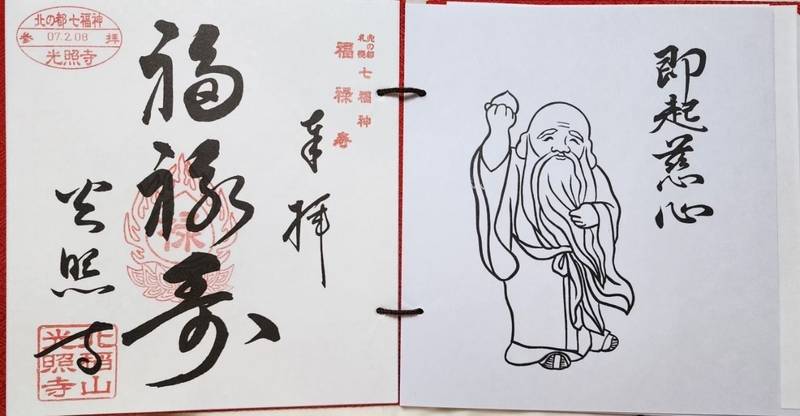 即起慈心
北の都
札幌
七福神
福禄寿
奉拝
福禄寿
禄
光照寺
北の都七福神
参 07.2.08 拝
光照寺
北稲山
光照寺